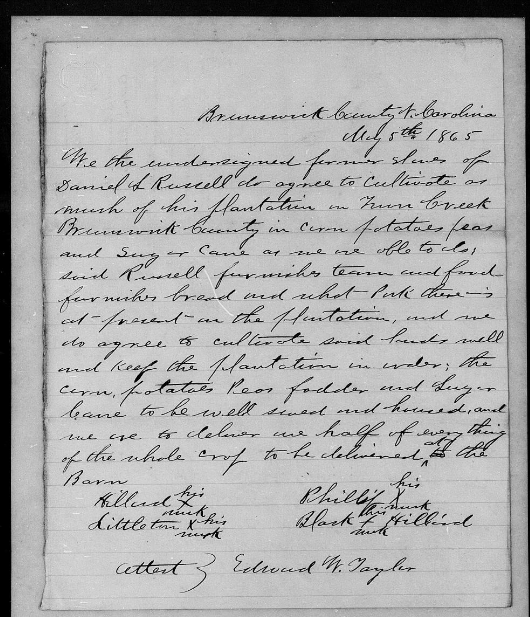 Brunswick County N. Carolina
May 5th 1865
We the undersigned former slaves of
Daniel L Russell do agree to cultivate as
much of his plantation on Town Creek
Brunswick County in corn potatoes peas
and Sugar Cane as we are able to do;
said Russell furnishes team and food
furnishes bread and what Pork there is
at present on the plantation, and we
do agree to cultivate said lands well
and keep the plantation in order; the
corn, potatoes Peas fodder and Sugar
Cane to be well saved and housed, and
we are to deliver one half of everything
of the whole crop to be delivered at the
Barn
Hilliard his X mark Phillip his X mark
Littleton X his mark Black his X mark Hilliard
Attest } Edward W. Taylor